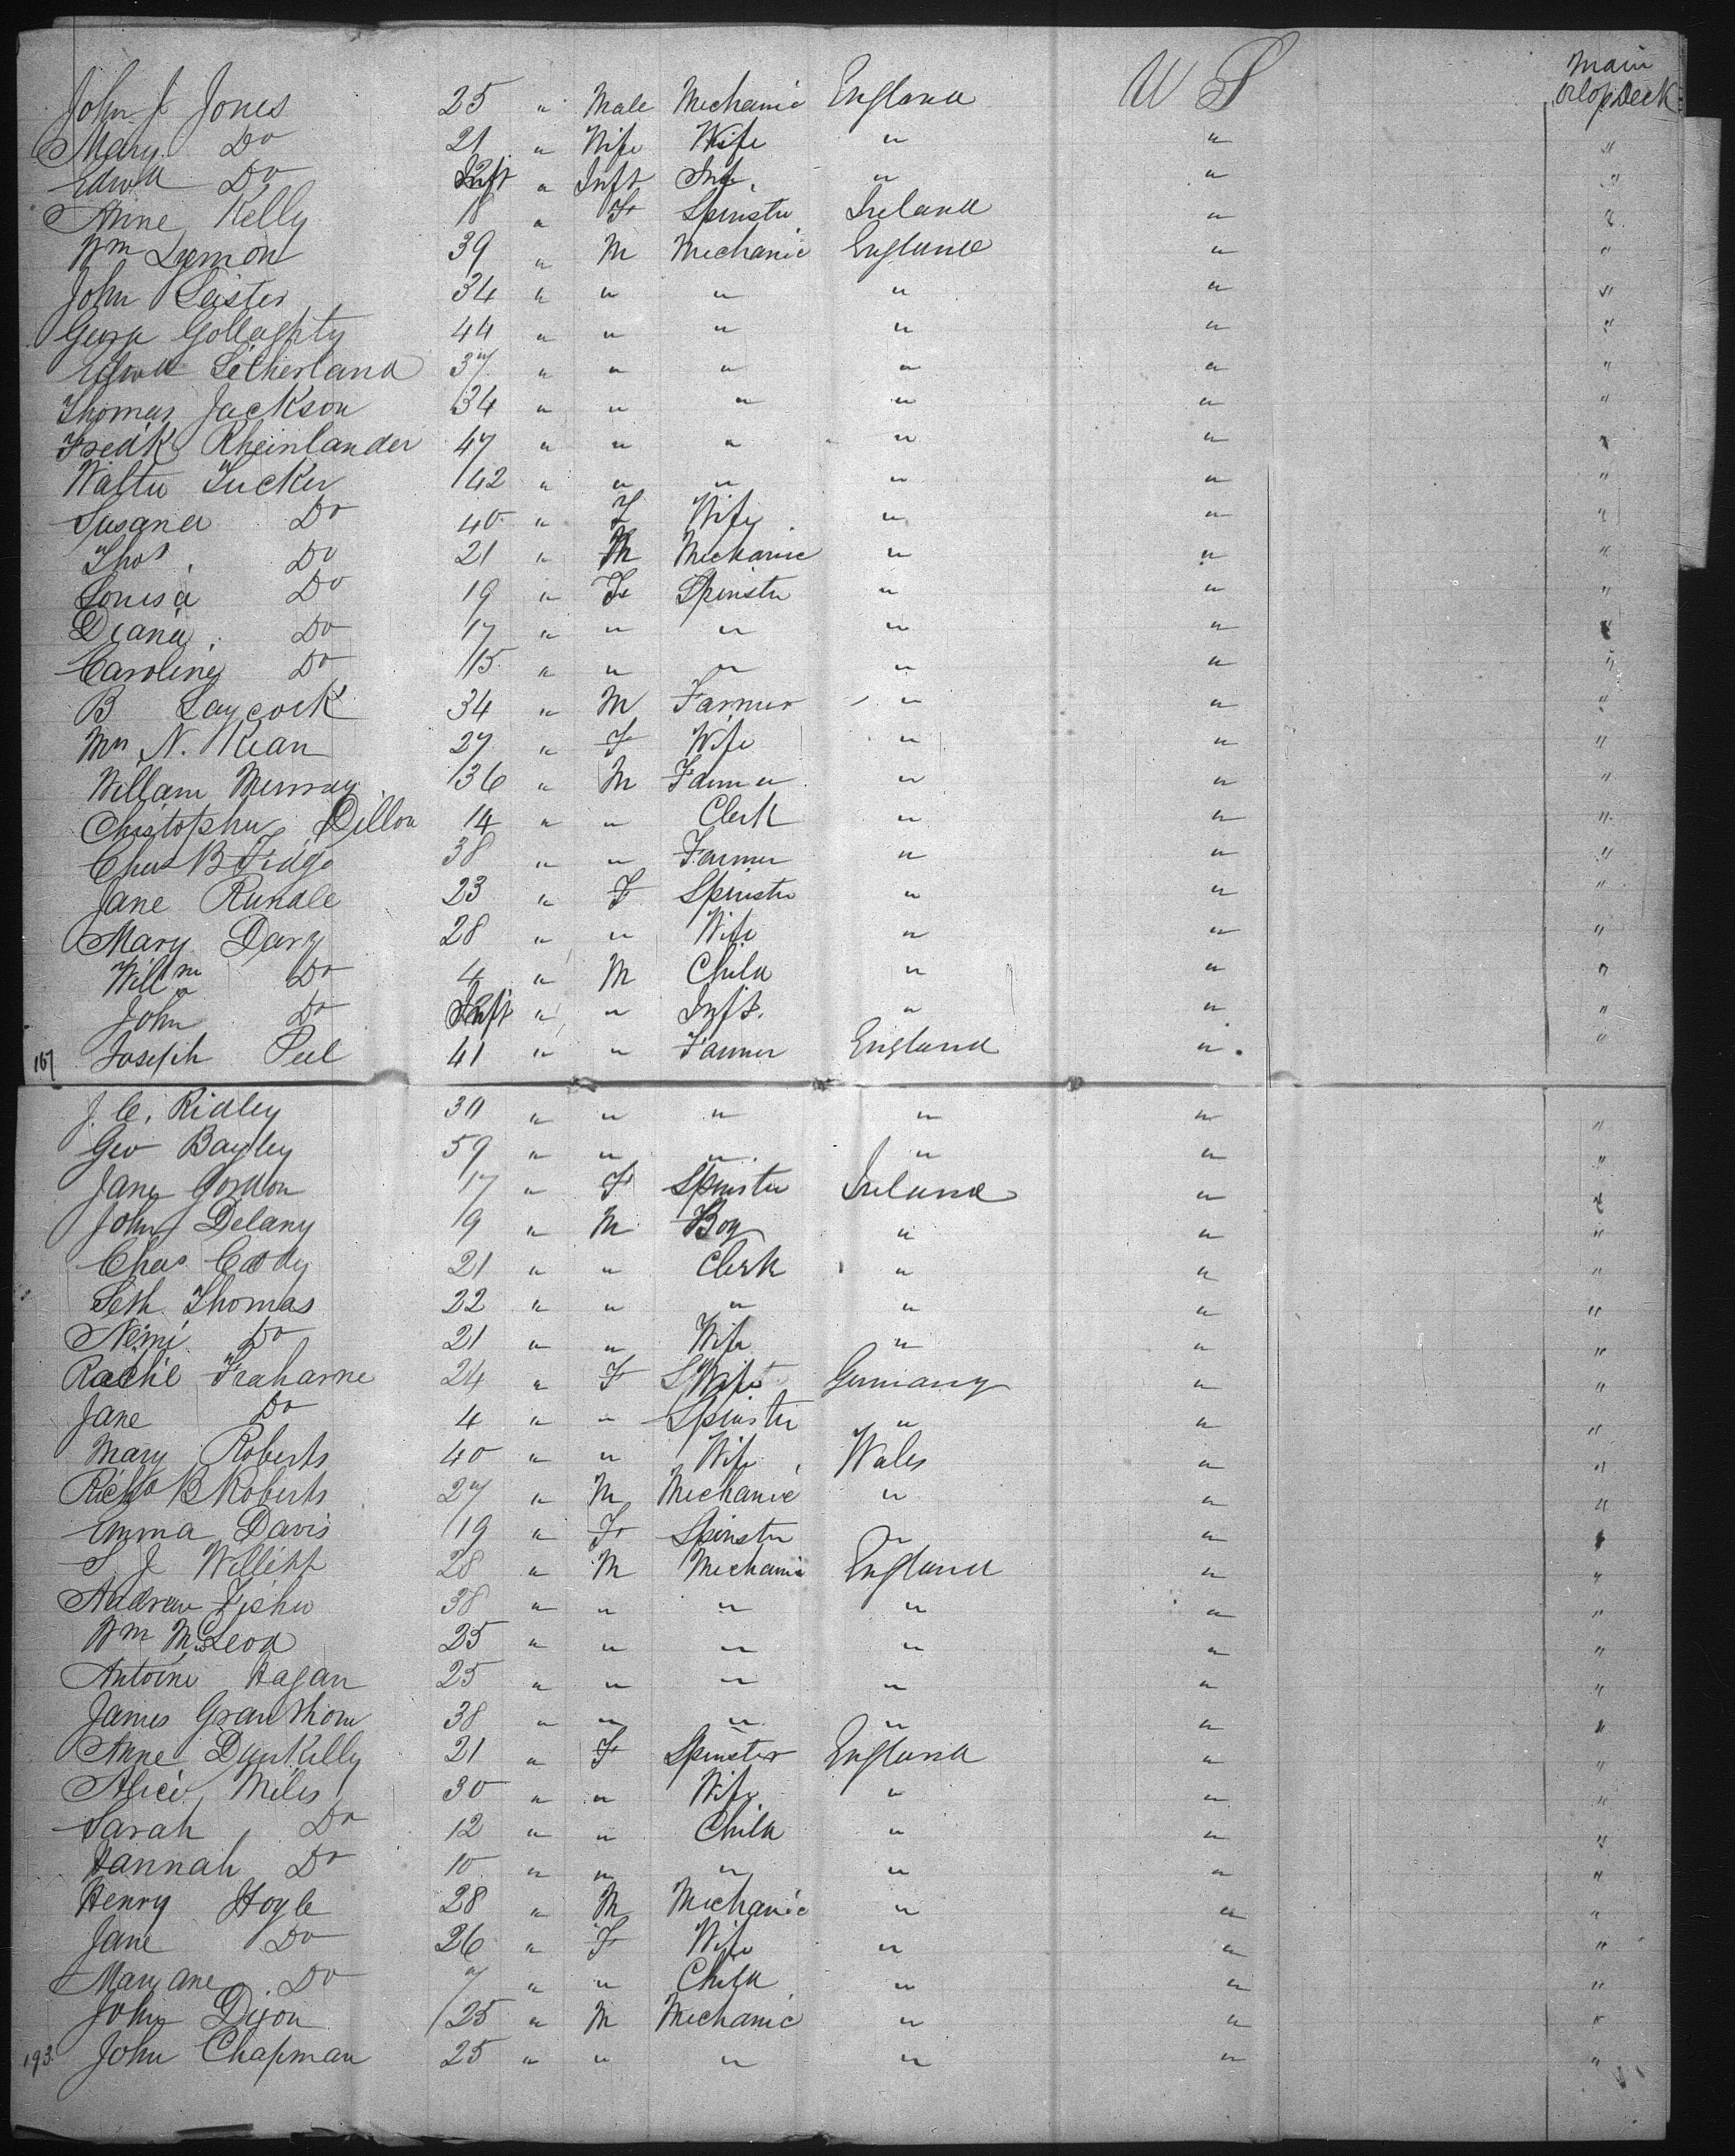 Main
Orlop Deck
John J Jones 25 " Male Mechanic England U S
Mary Do 21 " Wife Wife " " "
Edwd Do Inft " Inft Inf. " " "
Anne Kelly 18 " F Spinster Ireland " "
Wm Lemon 39 " M Mechanic England " "
John Leister 34 " " " " " "
George Gollaghty 44 " " " " " "
Edwd Letherland 37 " " " " " "
Thomas Jackson 34 " " " " " "
Fredk Rheinlander 47 " " " " " "
Walter Tucker 42 " " " " " "
Susana Do 40 " F Wife " " "
Thos. Do 21 " M Mechanic " " "
Louisa Do 19 " F Spinster " " "
Diana Do 17 " " " " " "
Caroline Do 15 " " " " " "
B Laycock 34 " M Farmer " " "
Mrs N. Kean 27 " F Wife " " "
William Murray 36 " M Farmer " " "
Christopher Dillon 14 " " Clerk " " "
Chas B Fidge 38 " " Farmer " " "
Jane Rundle 23 " F Spinster " " "
Mary Davy 28 " " Wife " " "
Willm Do 4 " M Child " " "
John Do Inft " " Inft. " " "
167 Joseph Peel 41 " " Farmer England " "
J. C. Ridley 30 " " " " " "
Geo Bayley 59 " " " " " "
Jane Gordon 17 " F Spinster Ireland " "
John Delany 9 " M Boy " " "
Chas Cody 21 " " Clerk " " "
Seth Thomas 22 " " " " " "
Nemi Do 21 " " Wife " " "
Rachel Fraharne 24 " F Wife Germany " "
Jane Do 4 " " Spinster " " "
Mary Roberts 40 " " Wife Wales " "
Richd B Roberts 27 " M Mechanic " " "
Emma Davis 19 " F Spinster " " "
S J 28 " M Mechanic England " "
Andrew Fisher 38 " " " " " "
Wm McLeod 25 " " " " " "
Antoine Hagan 25 " " " " " "
James Granthom 38 " " " " " "
Anne Dunkilly 21 " F Spinster England " "
Alice Miles 30 " " Wife " " "
Sarah Do 12 " " Child " " "
Hannah Do 10 " " " " " "
Henry Hoyle 28 " M Mechanic " " "
Jane Do 26 " F Wife " " "
Mary Ane Do 7 " " Child " " "
John Dixon 25 " M Mechanic " " "
193 John Chapman 25 " " " " " "